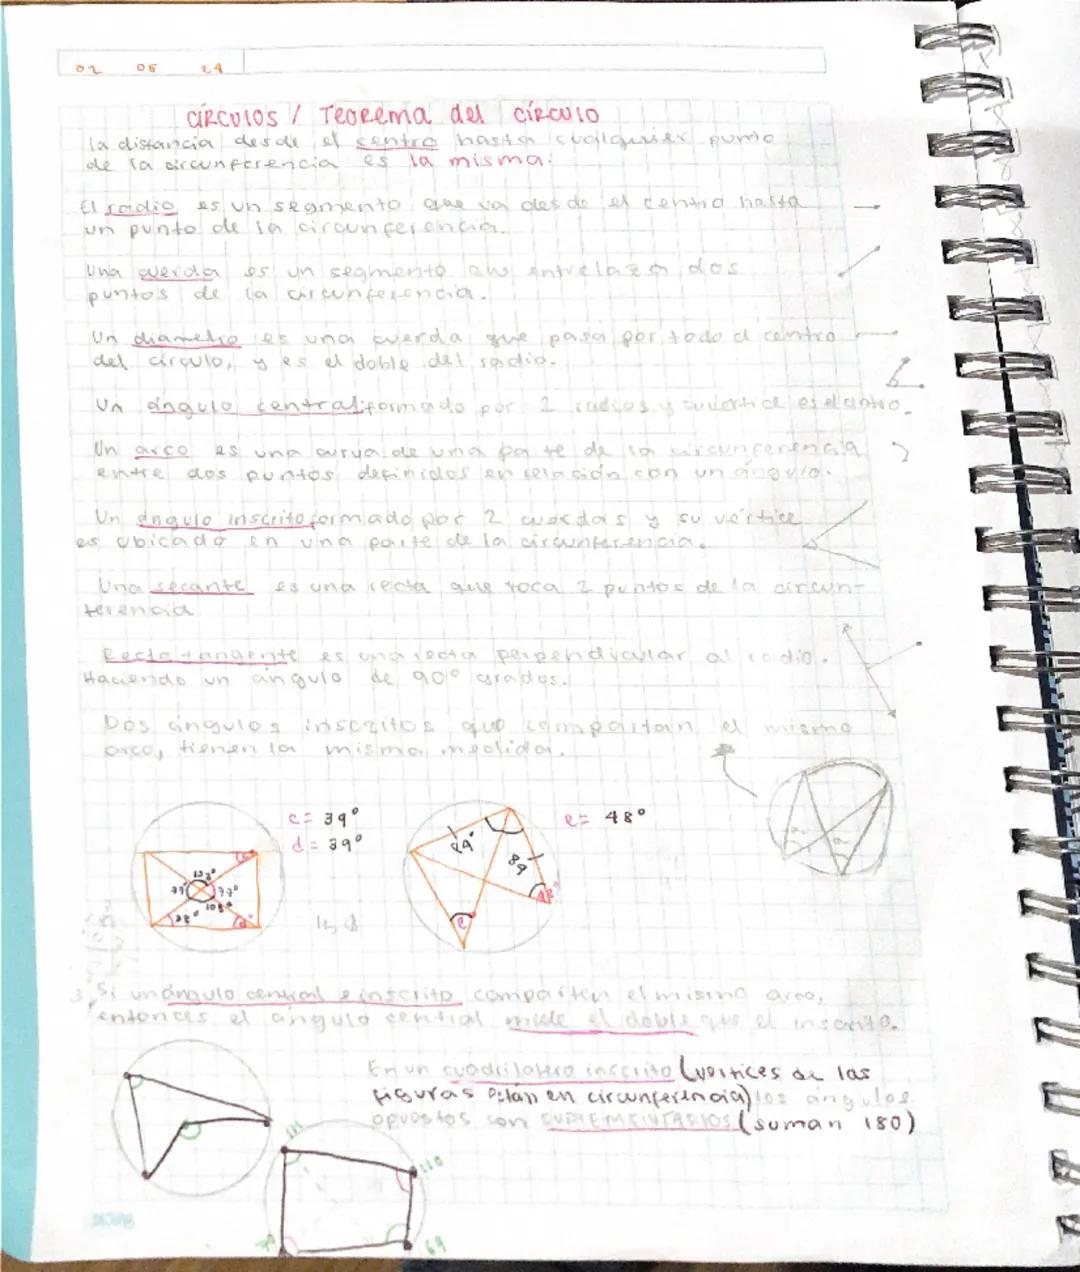 02 05 24
CÍRCULOS / TEOREMA del CÍRCULO
La distancia desde el centro hasta cualquier punto
de la circunferencia es la misma.
El radio es un segmento que va desde el centro hasta
un punto de la circunferencia.
Una cuerda es un segmento que entrelaza dos
puntos de la circunferencia.
Un diametro es una cuerda que pasa por todo el centro
del círculo, y es el doble del radio.
Un ángulo central formado por 2 radios y su vertice es el centro.
Un arco es una curva de una parte de la circunferencia
entre dos puntos definidos en relación con un ángulo.
Un ángulo inscrito formado por 2 cuerdas y su vértice
es ubicado en una parte de la circunferencia.
Una secante es una recta que toca 2 puntos de la circun-
ferencia
Recta tangente es una recta perpendicular al radio.
Haciendo un ángulo de 90° grados.
Dos ángulos inscritos que compartan el mismo
arco, tienen la misma medida.
c= 39°
d= 39°
e= 48°
77°
103°
d
84
48°
e
3. Si un ángulo central e inscrito comparten el mismo arco,
entonces el ángulo central mide el doble que el inscrito.
En un cuadrilátero inscrito (vértices de las
figuras están en circunferencia) los ángulos
opuestos son SUPLEMENTARIOS (suman 180)
111
110
70
69